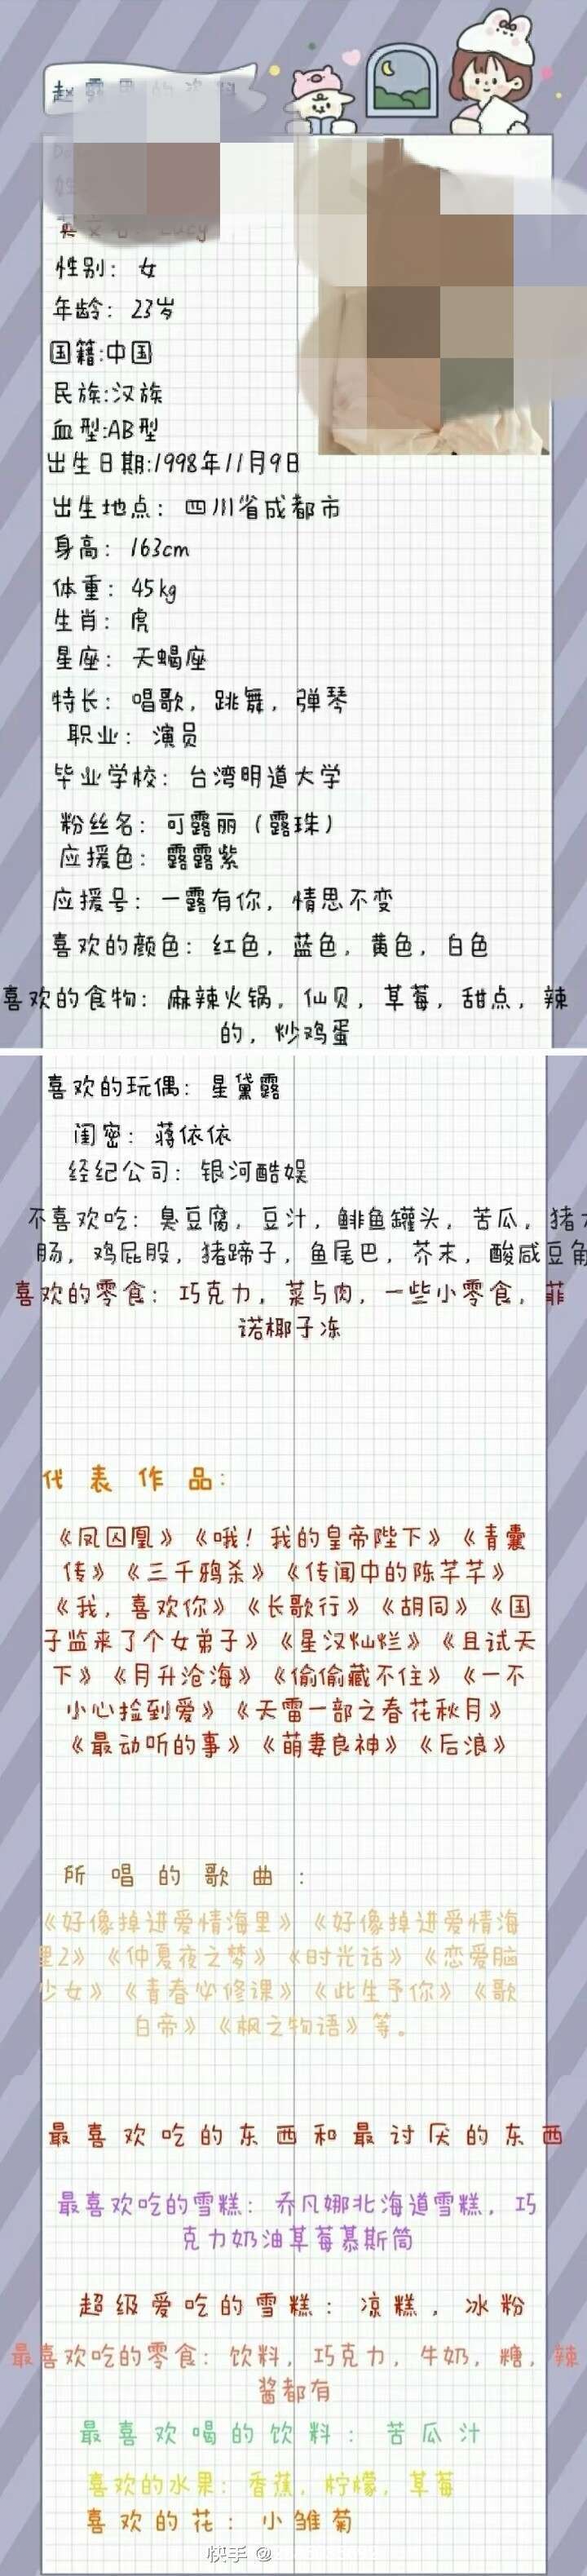 赵露思的资料
性别：女
年龄：23岁
国籍:中国
民族:汉族
血型:AB型
出生日期:1998年11月9日
出生地点：四川省成都市
身高：163cm
体重：45kg
生肖：虎
星座：天蝎座
特长：唱歌，跳舞，弹琴
职业：演员
毕业学校：台湾明道大学
粉丝名：可露丽（露珠）
应援色：露露紫
应援号：一露有你，情思不变
喜欢的颜色：红色，蓝色，黄色，白色
喜欢的食物：麻辣火锅，仙贝，草莓，甜点，辣
的，炒鸡蛋
喜欢的玩偶：星黛露
闺密：蒋依依
经纪公司：银河酷娱
不喜欢吃：臭豆腐，豆汁，鲱鱼罐头，苦瓜，猪大
肠，鸡屁股，猪蹄子，鱼尾巴，芥末，酸咸豆角
喜欢的零食：巧克力，菜与肉，一些小零食，菲
诺椰子冻
代表作品：
《凤囚凰》《哦！我的皇帝陛下》《青囊
传》《三千鸦杀》《传闻中的陈芊芊》
《我，喜欢你》《长歌行》《胡同》《国
子监来了个女弟子》《星汉灿烂》《且试天
下》《月升沧海》《偷偷藏不住》《一不
小心捡到爱》《天雷一部之春花秋月》
《最动听的事》《萌妻食神》《后浪》
所唱的歌曲：
《好像掉进爱情海里》《好像掉进爱情海
里2》《仲夏夜之梦》《时光话》《恋爱脑
少女》《青春必修课》《此生予你》《歌
白帝》《枫之物语》等。
最喜欢吃的东西和最讨厌的东西
最喜欢吃的雪糕：乔凡娜北海道雪糕，巧
克力奶油草莓慕斯筒
超级爱吃的雪糕：凉糕，冰粉
最喜欢吃的零食：饮料，巧克力，牛奶，糖，辣
酱都有
最喜欢喝的饮料：苦瓜汁
喜欢的水果：香蕉，柠檬，草莓
喜欢的花：小雏菊
快手 @